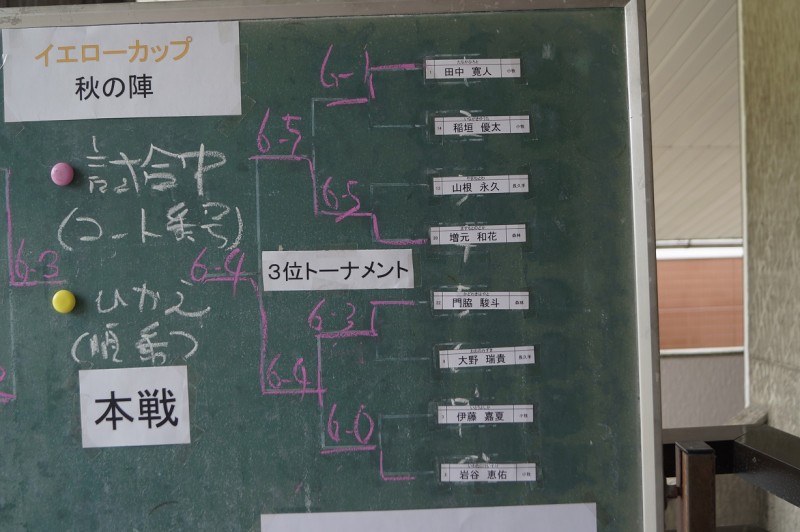 イエローカップ
秋の陣
試合中
(コート番号)
ひかえ
(順番)
本戦
6-3
3位トーナメント
6-1
6-5
6-5
6-4
6-3
6-4
6-0
田中 寛人
稲垣 優太
山根 永久
増元 和花
門脇 駿斗
大野 瑞貴
伊藤 嘉夏
岩谷 恵佑